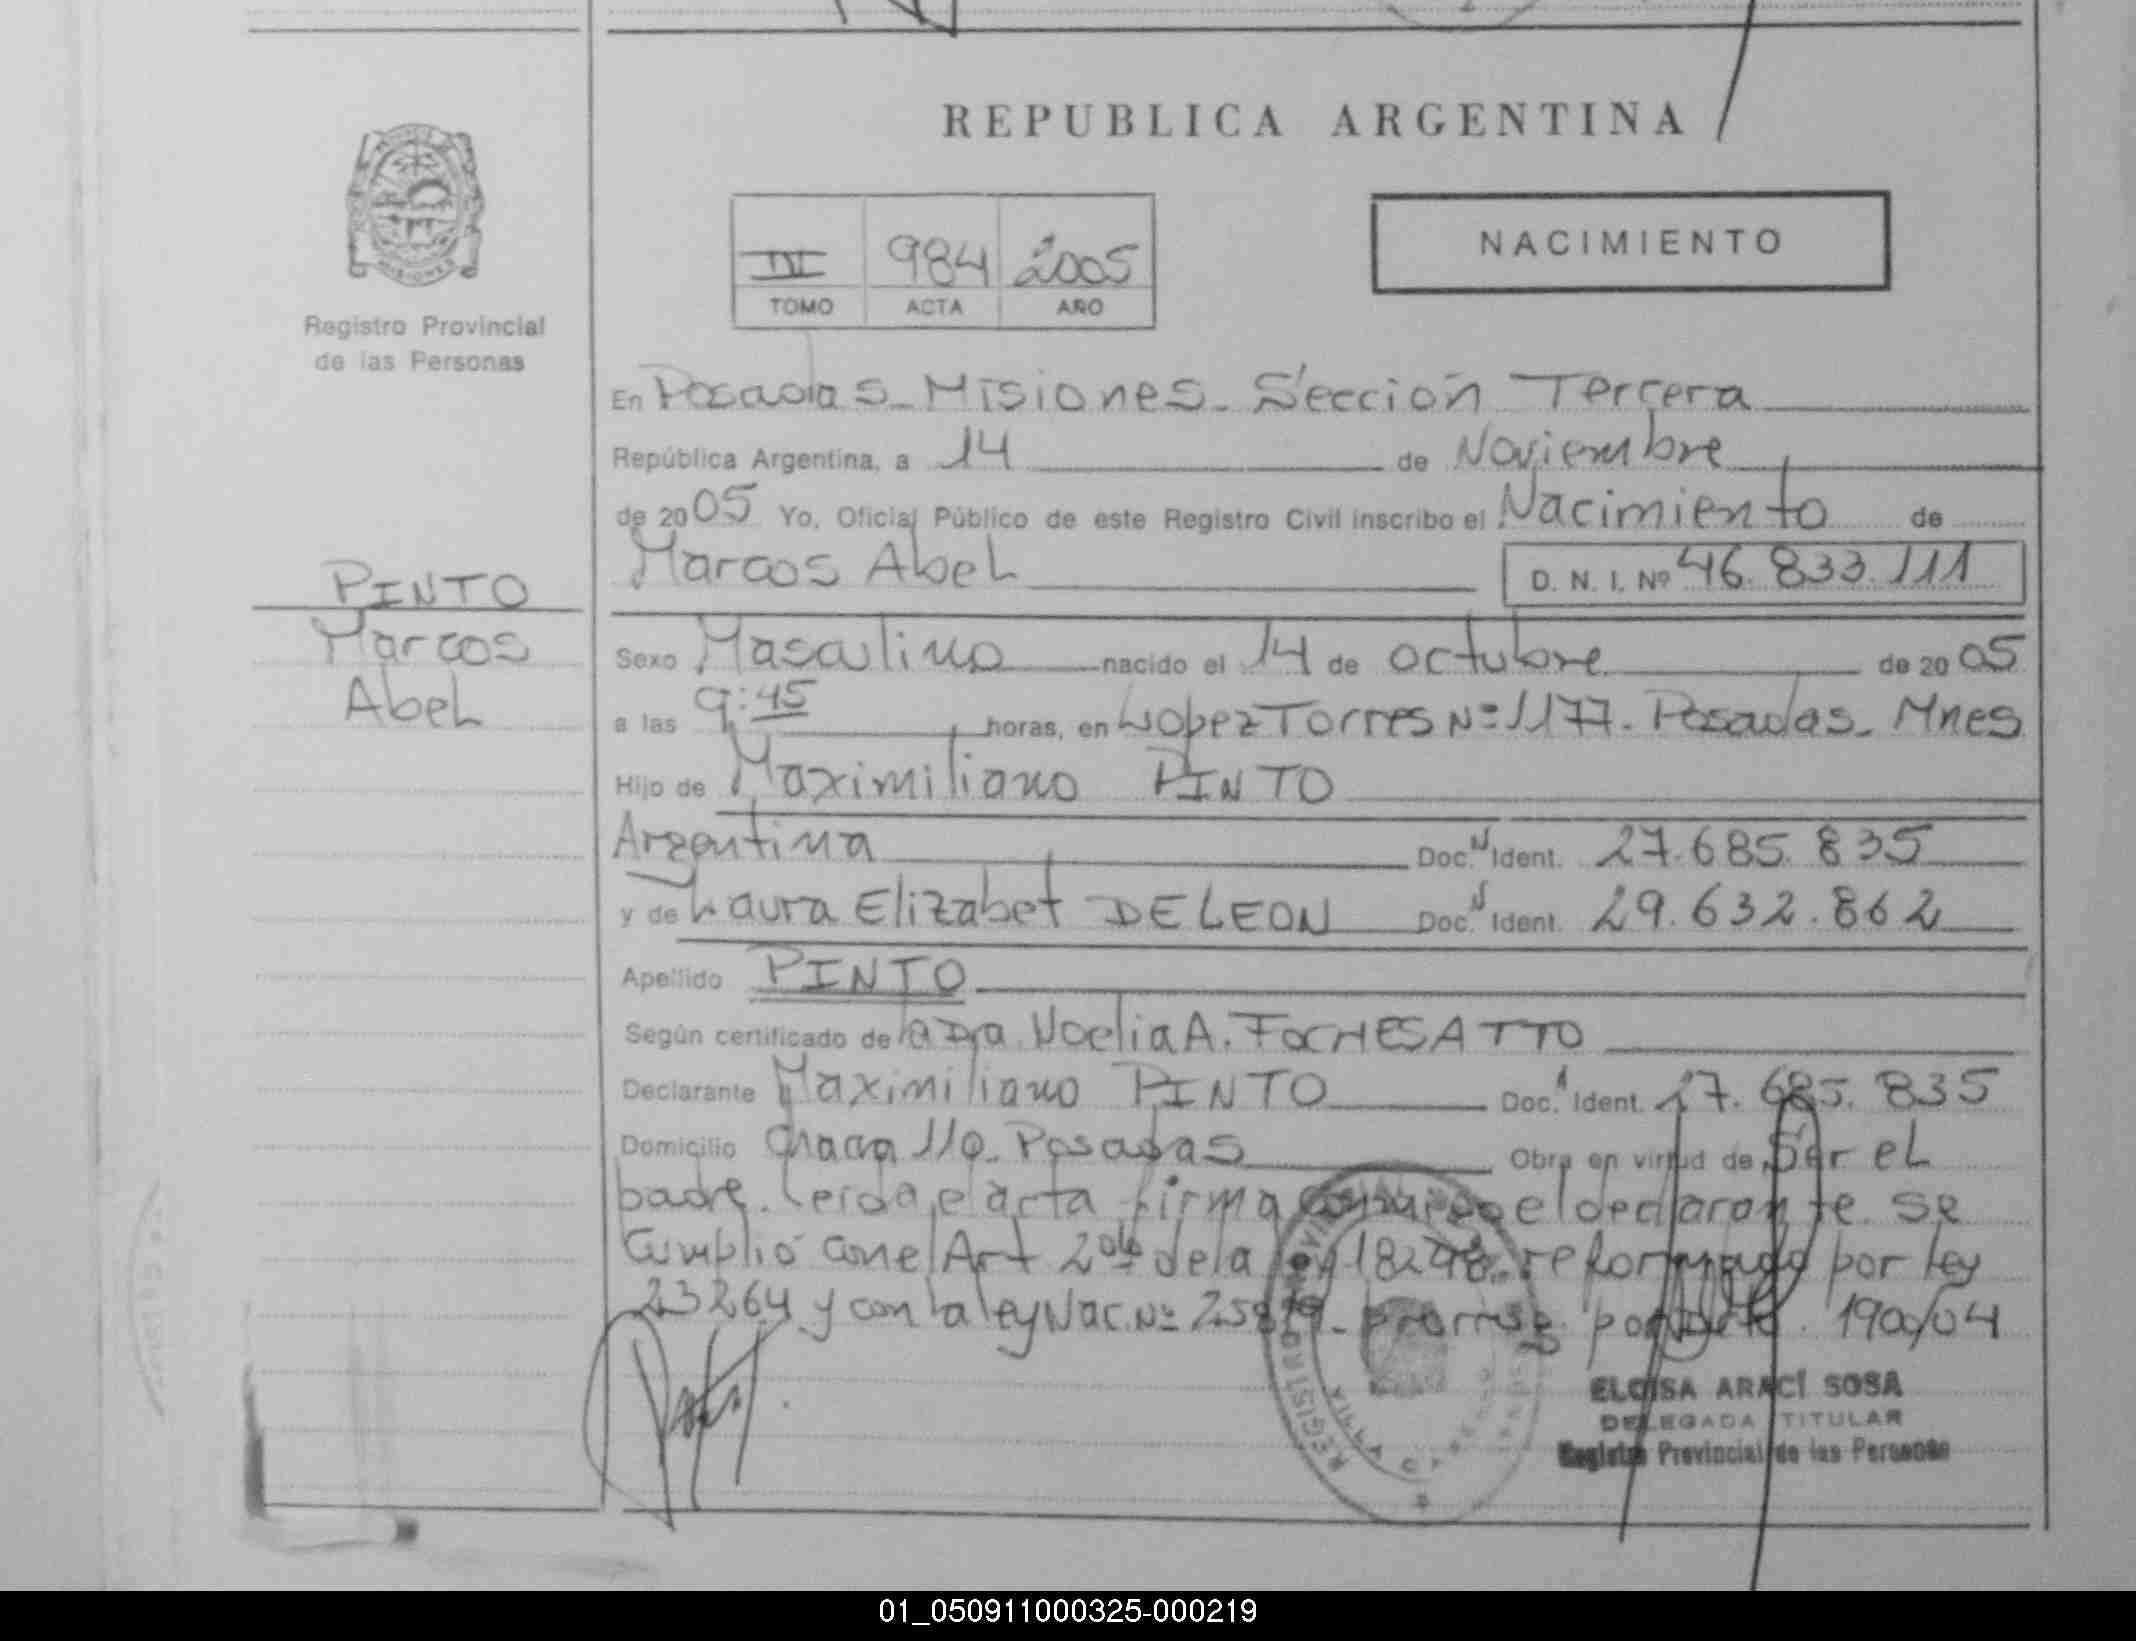 REPUBLICA ARGENTINA
NACIMIENTO
III 984 2005
TOMO ACTA AÑO
MISIONES
Registro Provincial
de las Personas
En Posadas - Misiones - Sección Tercera
República Argentina, a 14 de Noviembre
de 2005 Yo, Oficial Público de este Registro Civil inscribo el Nacimiento de
Marcos Abel D. N. I. Nº 46.833.111
PINTO
Marcos
Abel
Sexo Masculino nacido el 14 de octubre de 2005
a las 9:45 horas, en Lopez Torres Nº 1177 - Posadas - Mnes
Hijo de Maximiliano PINTO
Argentina Doc. N Ident. 27.685.835
y de Laura Elizabet DE LEON Doc. N Ident. 29.632.862
Apellido PINTO
Según certificado de la Dra. Noelia A. FOCHESATTO
Declarante Maximiliano PINTO Doc. Ident. 27.685.835
Domicilio Chacra 110 - Posadas Obra en virtud de Ser el
padre. Leída el acta firma conmigo el declarante. se
Cumplió con el Art 2do de la ley 18248. reformado por ley
23264 y con la ley Nac. Nº 25819 - por 190/04
REGISTRO
VILLA CABELLO
ELOISA ARACÍ SOSA
DELEGADA TITULAR
Registro Provincial de las Personas
01_050911000325-000219